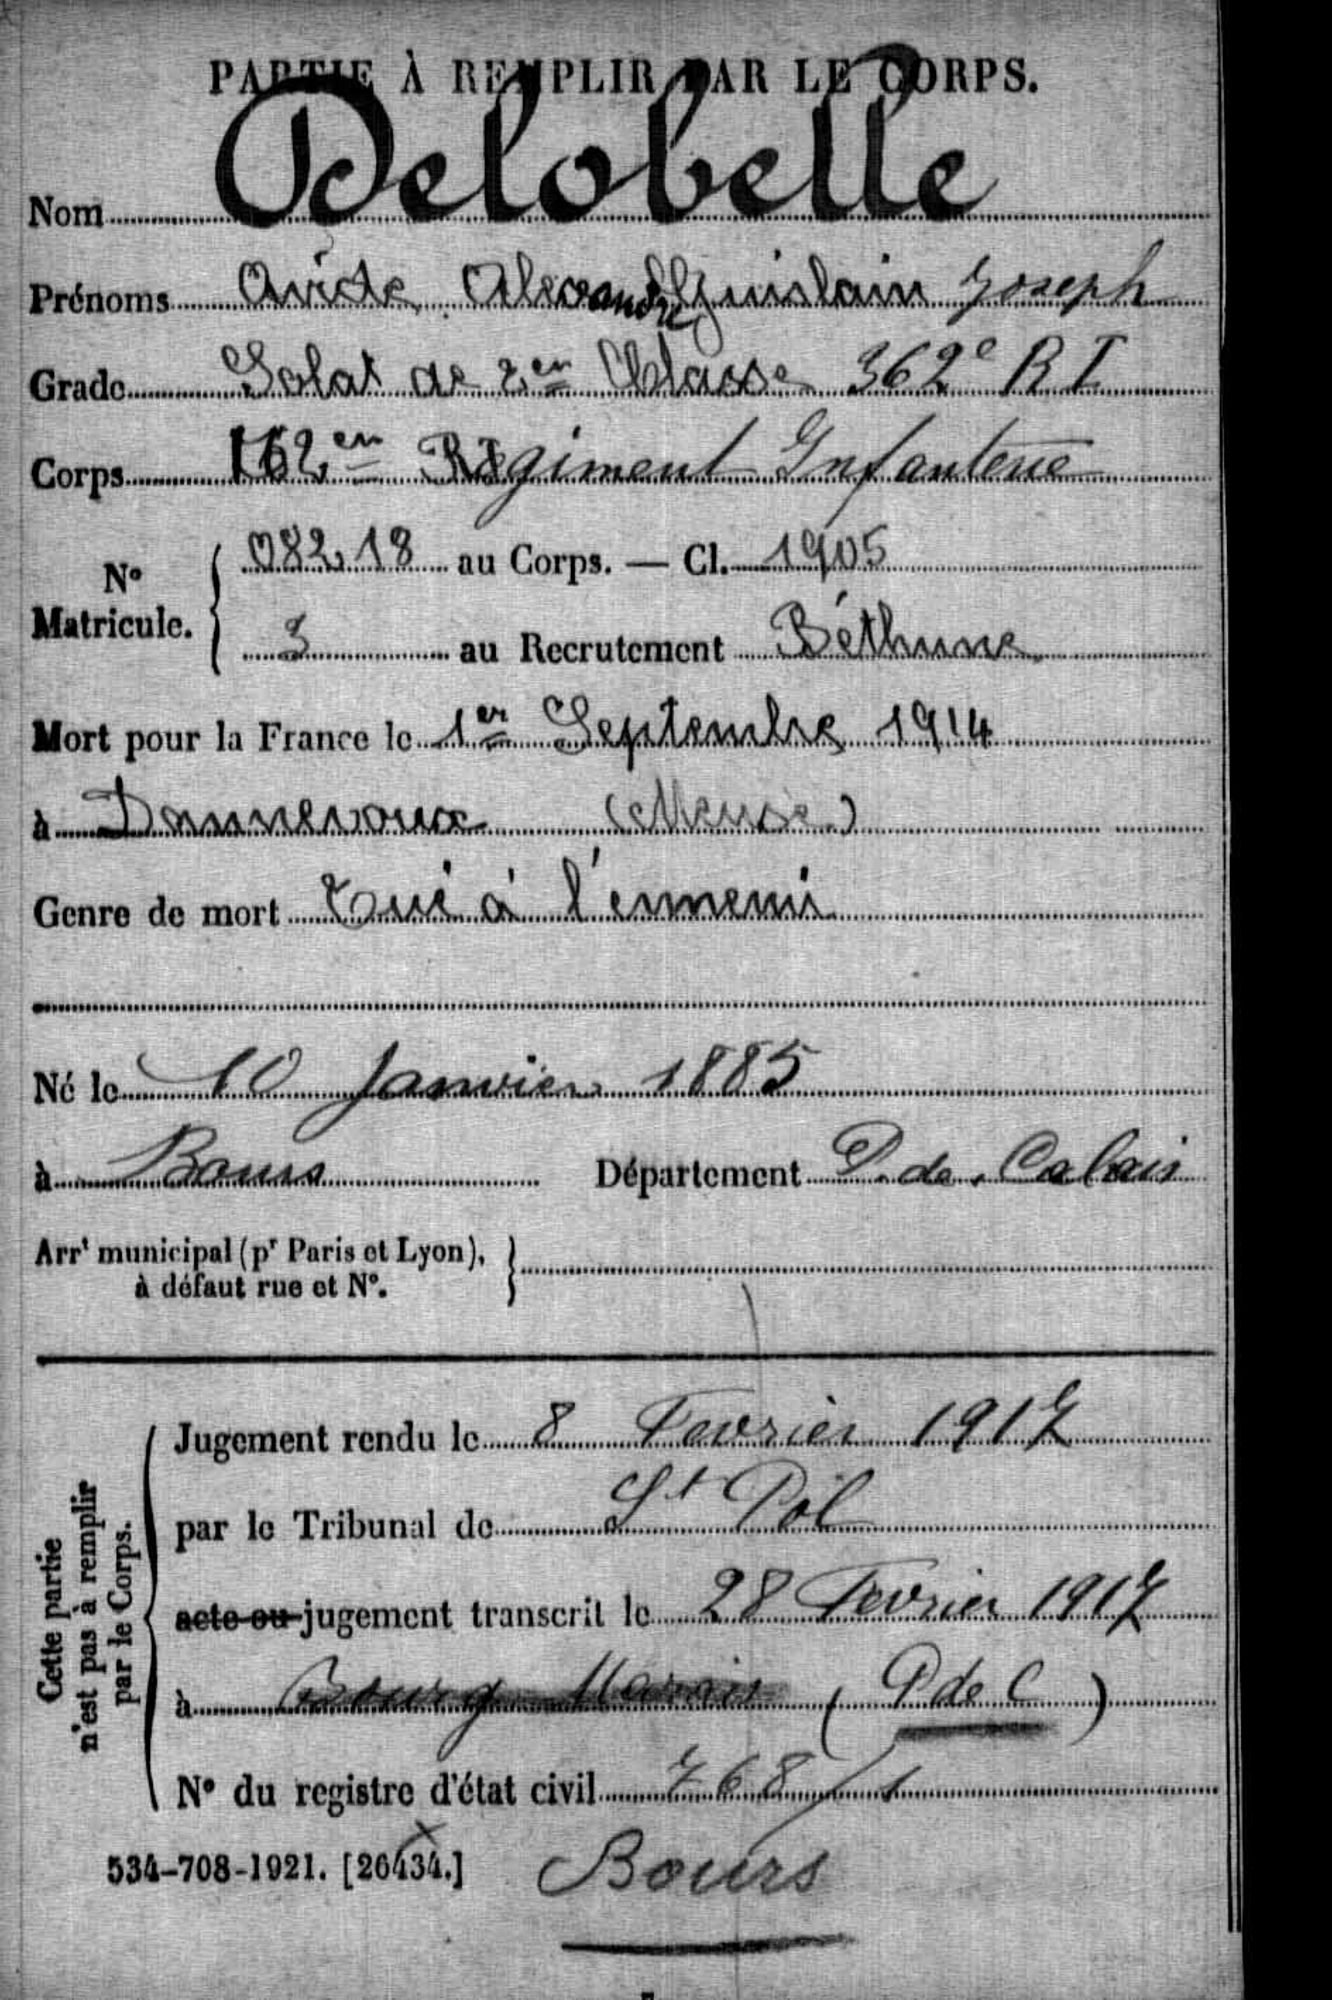 PARTIE À REMPLIR PAR LE CORPS.
Nom Delobelle
Prénoms Alexandre Guislain Joseph
Grade Solat de 2em Classe 362e RI
Corps 162em Régiment Infanterie
N° Matricule. { 08218 au Corps. — Cl. 1905
3 au Recrutement Béthune
Mort pour la France le 1er Septembre 1914
à Dannevoux (Meuse)
Genre de mort Tué à l'ennemi
Né le 10 Janvier 1885
à Bours Département P. de Calais
Arrt municipal (pr Paris et Lyon), à défaut rue et N°.
Cette partie n'est pas à remplir par le Corps.
Jugement rendu le 8 Fevrier 1917
par le Tribunal de St Pol
acte ou jugement transcrit le 28 Fevrier 1917
à Bourg Marais (P de C)
N° du registre d'état civil 768/1
534-708-1921. [26434.] Bours